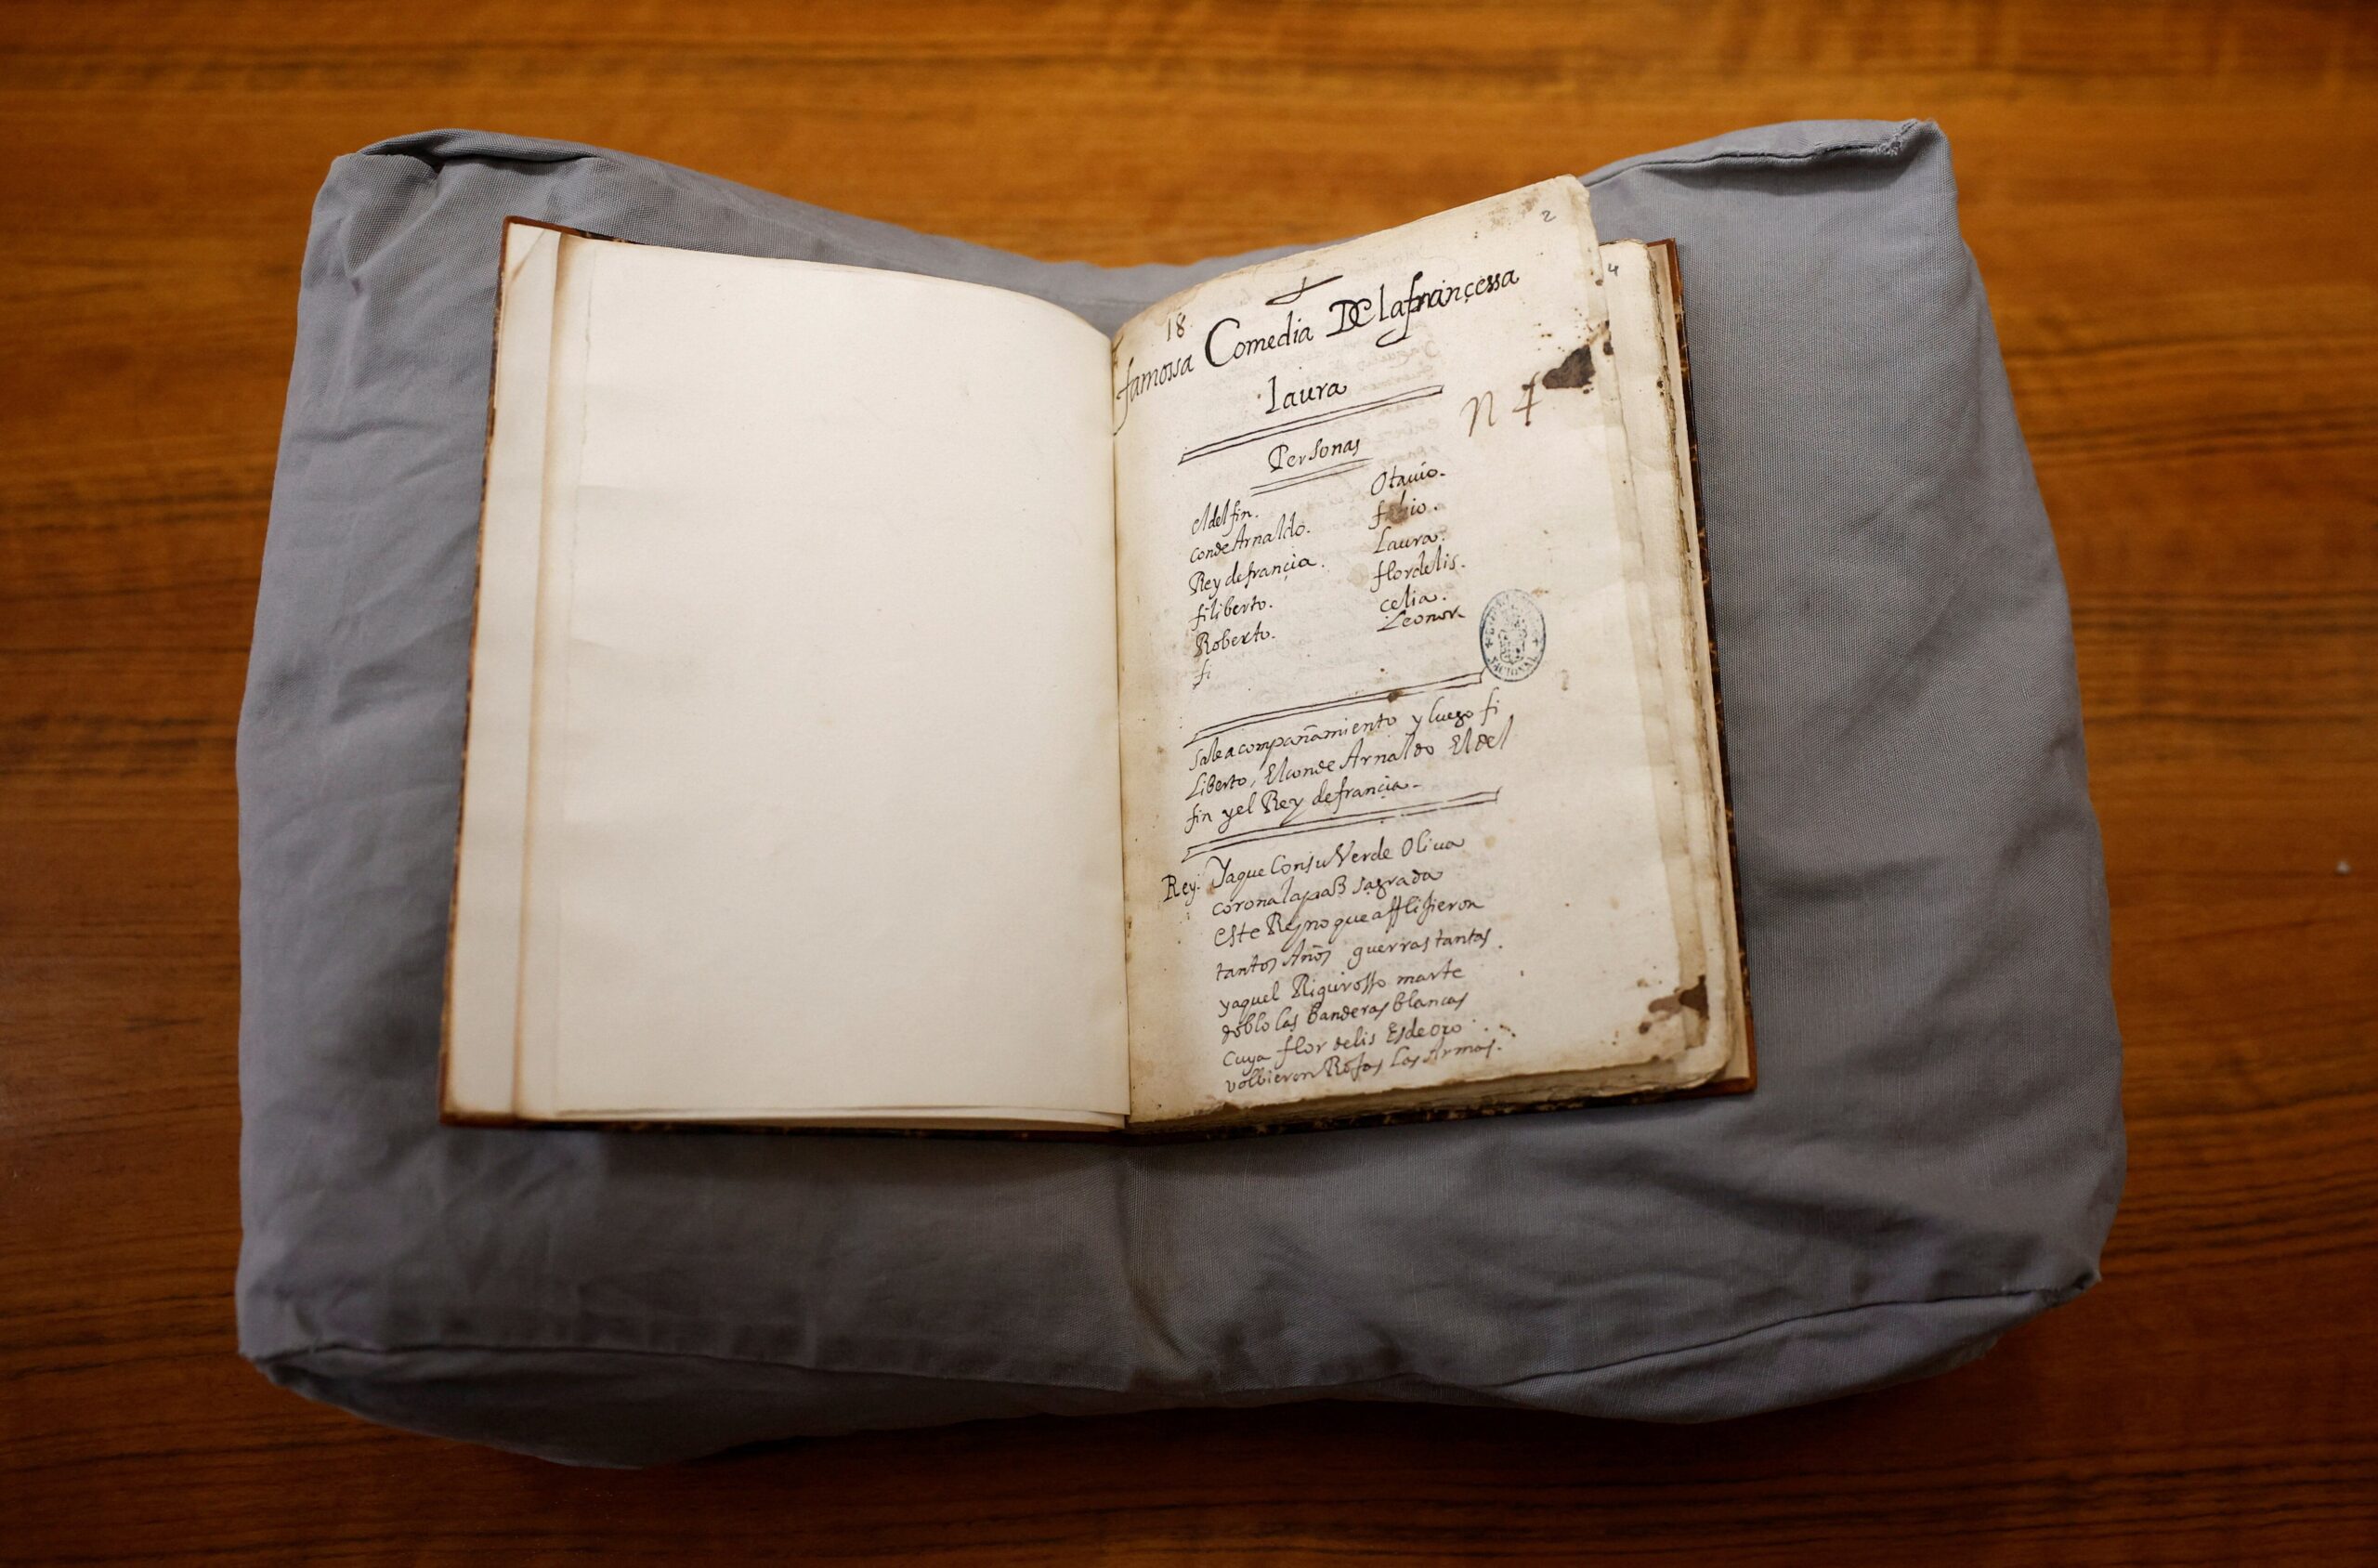 2
4
18
famossa Comedia De lafrancessa
laura
n 4
Personas
el delfin.
conde Arnaldo.
Rey de francia.
filiberto.
Roberto.
fi
Otauio.
fabio.
Laura.
flordelis.
celia.
Leonor
Sale acompañamiento y luego fi
Liberto, El conde Arnaldo El del
fin y el Rey de francia.
Rey. Ya que Con su Verde Oliua
corona la paz sagrada
este Reyno que afflijieron
tantos Años guerras tantas.
y aquel Rigurosso marte
doblo las banderas blancas
cuya flor de lis Es de oro
volbieron Rojas Las Armas.
NACIONAL